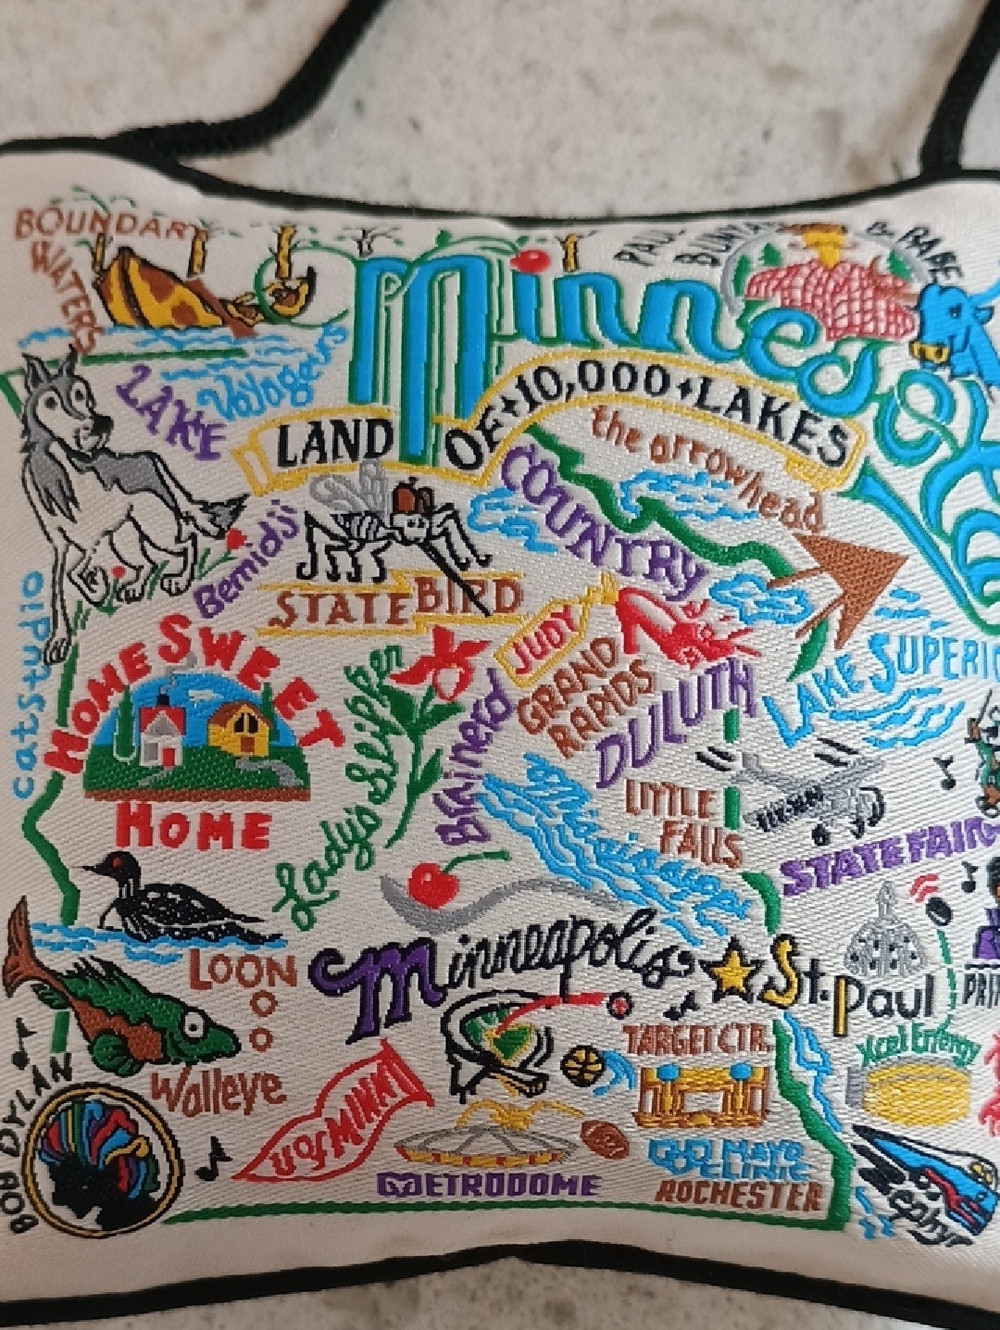 BOUNDARY
WATERS
PAUL
BUNYAN
& BABE
Minnesota
Voyageurs
LAND OF • 10,000 • LAKES
LAKE
COUNTRY
the arrowhead
Bemidji
STATE BIRD
JUDY
GRAND
RAPIDS
DULUTH
LAKE SUPERIO
catstudio
HOME SWEET
HOME
Lady's Slipper
Brainerd
LITTLE
FALLS
Mississippi
STATE FAIR
LOON
Minneapolis
St. Paul
PRI
Walleye
TARGET CTR.
Xcel Energy
BOB DYLAN
U OF MINN
METRODOME
MAYO
CLINIC
ROCHESTER
Zephyr